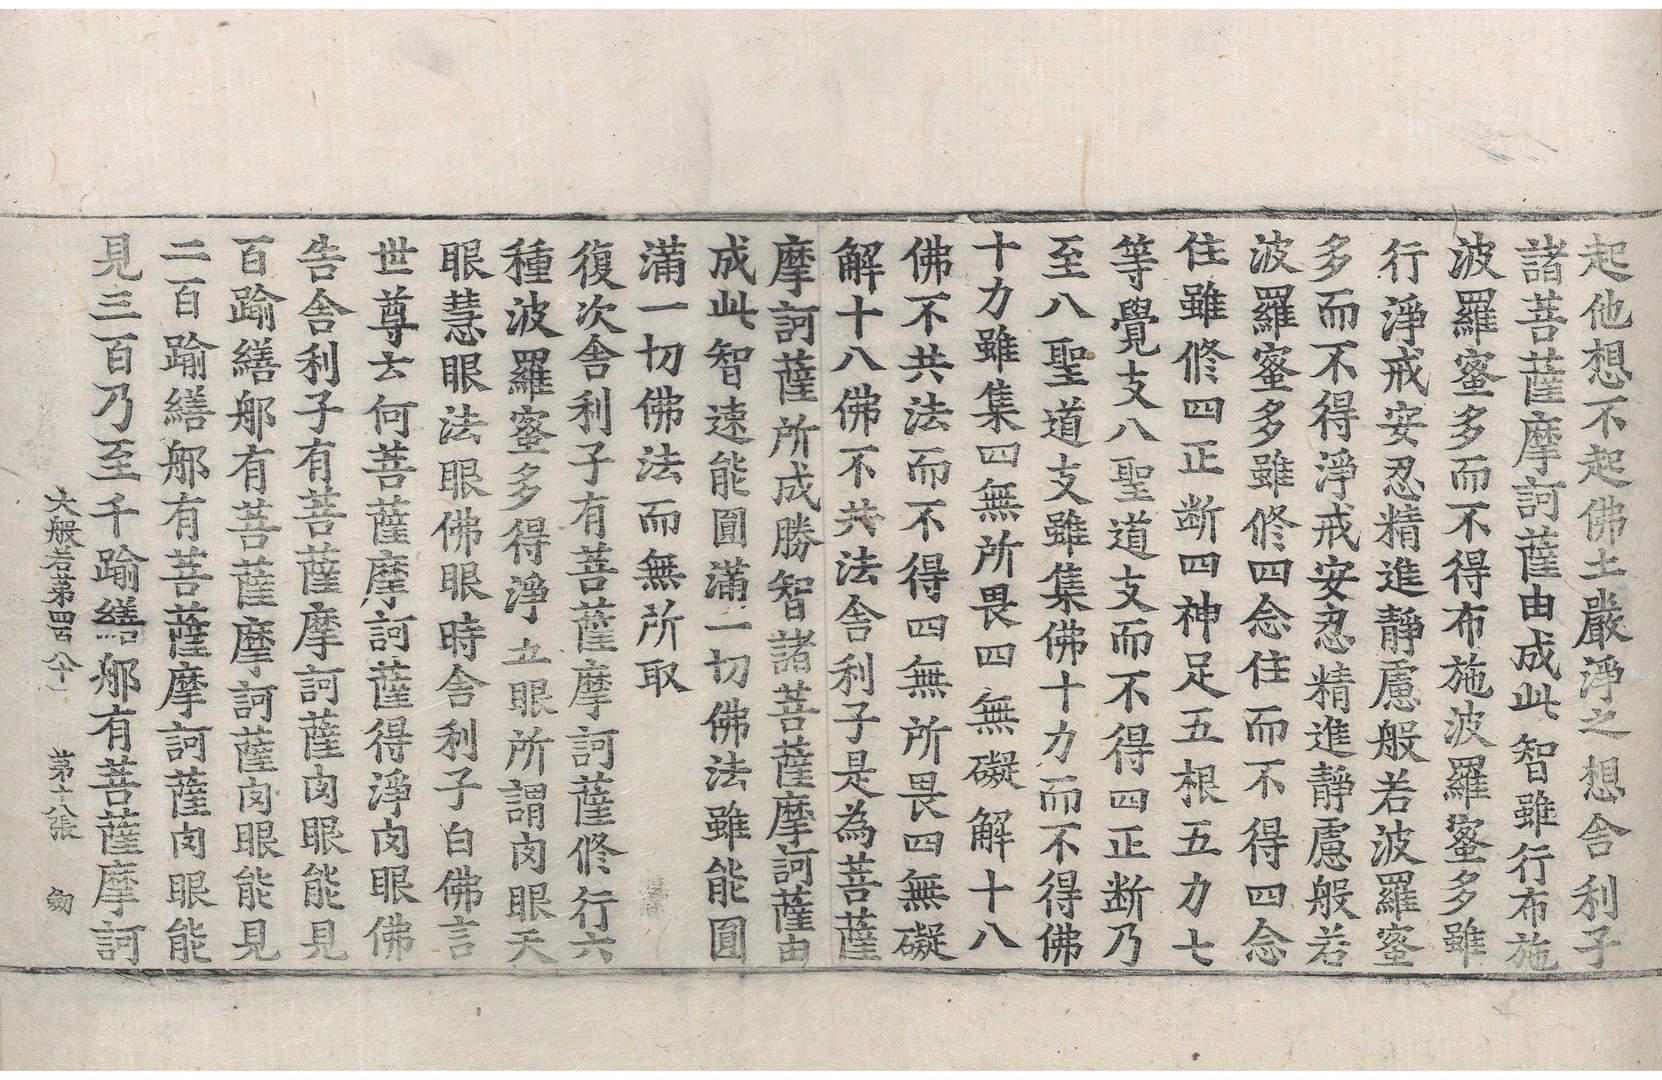 起他想不起佛土嚴淨之想舎利子
諸菩薩摩訶薩由成此智雖行布施
波羅蜜多而不得布施波羅蜜多雖
行淨戒安忍精進靜慮般若波羅蜜
多而不得淨戒安忍精進靜慮般若
波羅蜜多雖修四念住而不得四念
住雖修四正断四神足五根五力七
等覺支八聖道支而不得四正断乃
至八聖道支雖集佛十力而不得佛
十力雖集四無所畏四無礙解十八
佛不共法而不得四無所畏四無礙
解十八佛不共法舎利子是為菩薩
摩訶薩所成勝智諸菩薩摩訶薩由
成此智速能圓滿一切佛法雖能圓
滿一切佛法而無所取
復次舎利子有菩薩摩訶薩修行六
種波羅蜜多得淨五眼所謂肉眼天
眼慧眼法眼佛眼時舎利子白佛言
世尊云何菩薩摩訶薩得淨肉眼佛
告舎利子有菩薩摩訶薩肉眼能見
百踰繕那有菩薩摩訶薩肉眼能見
二百踰繕那有菩薩摩訶薩肉眼能
見三百乃至千踰繕那有菩薩摩訶
大般若第四百八十一 第十八張 劒